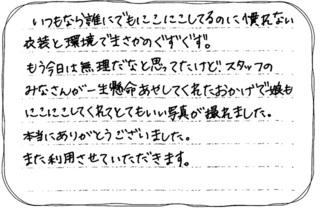 いつもなら誰にでもにこにこしてるのに慣れない
衣装と環境でまさかのぐずぐず。
もう今日は無理だなと思ってたけどスタッフの
みなさんが一生懸命あせしてくれたおかげで娘も
にこにこしてくれてとてもいい写真が撮れました。
本当にありがとうございました。
また利用させていただきます。